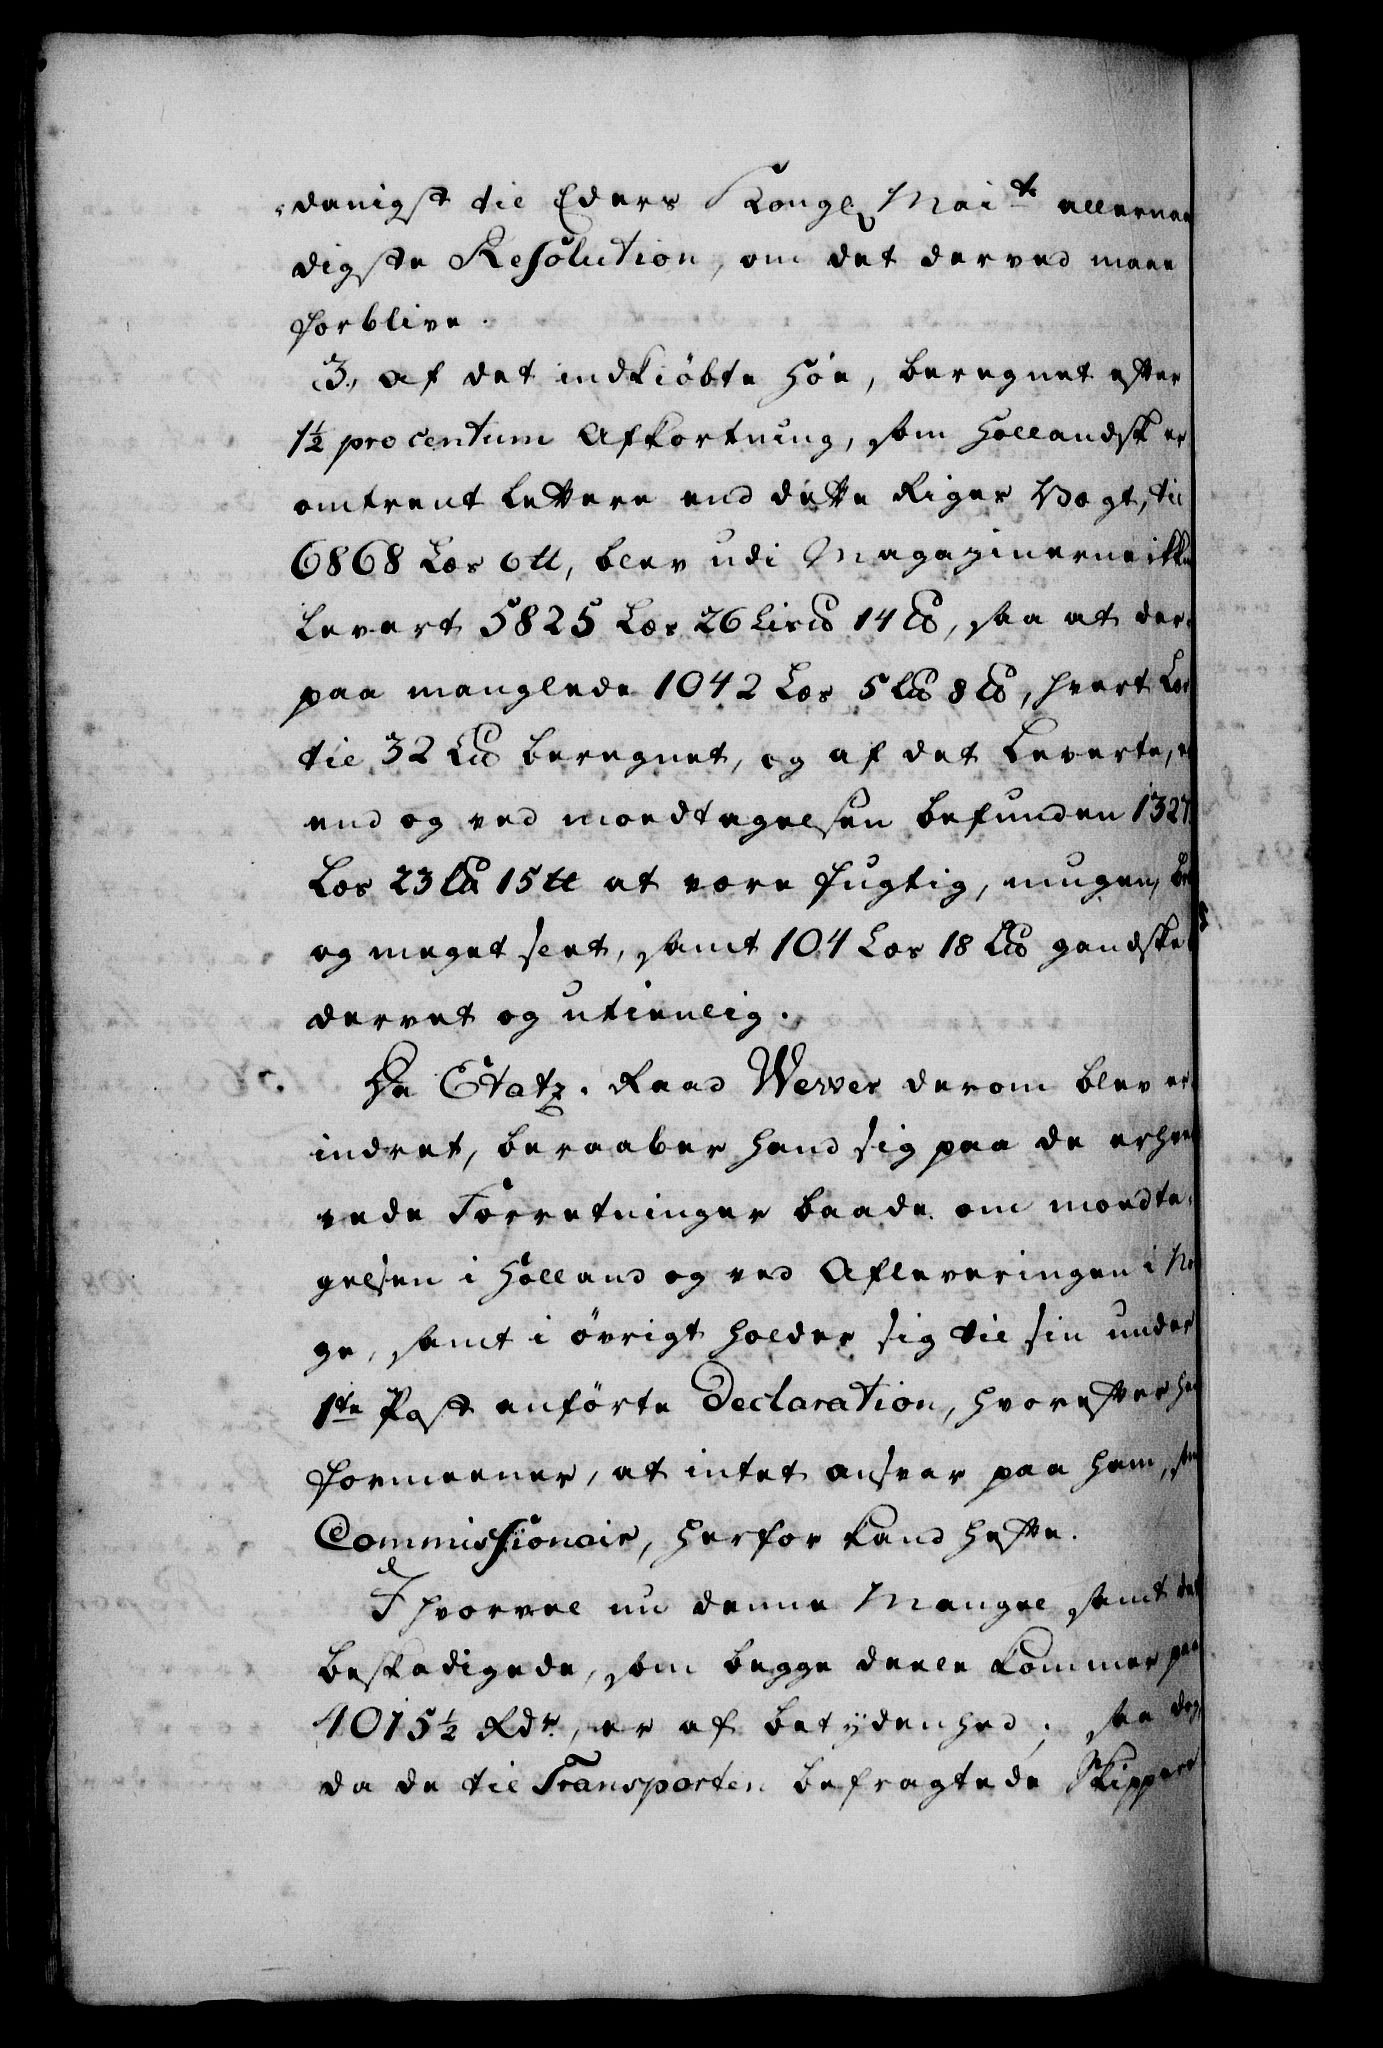 danigst til Eders Kongl Mai^te allernaa
digste Resolution, om det derved maae
forblive.
3, af det indkiöbte Höe, beregnet efter
1½ pro centum Afkortning, som Hollandsk er
omtrent lettere end dette Riges Vægt, til
6868 Læs 0 tt, blev udi Magazinerne ikke
Levert 5825 Læs 26 Lis℔ 14 ℔, saa at der-
paa manglede 1042 Læs 5 L℔ 8 ℔, hvert Læs
til 32 L℔ beregnet, og af det Leverte, er
end og ved modtagelsen befunden 1327
Læs 23 L℔ 15 tt at være fugtig, mugen,
og meget slet, samt 104 Læs 18 L℔ gandske
dervet og utienlig.
Da Etatz-Raad Wewer derom blev er-
indret, beraaber hand sig paa de erhver
vede Forretninger baade om modta-
gelsen i Holland og ved Afleveringen i No
ge, samt i övrigt holder sig til sin under
1te Post anförte Declaration, hvorefter hand
formeener, at intet ansvar paa ham, som
Commissionair, herfor kand hefte.
Ihvorvel nu denne Mangel samt det
beskadigede, som begge deele kommer paa
4015½ Rdr, er af betydenhed; saa dog
da de til Transporten befragtede Skippere